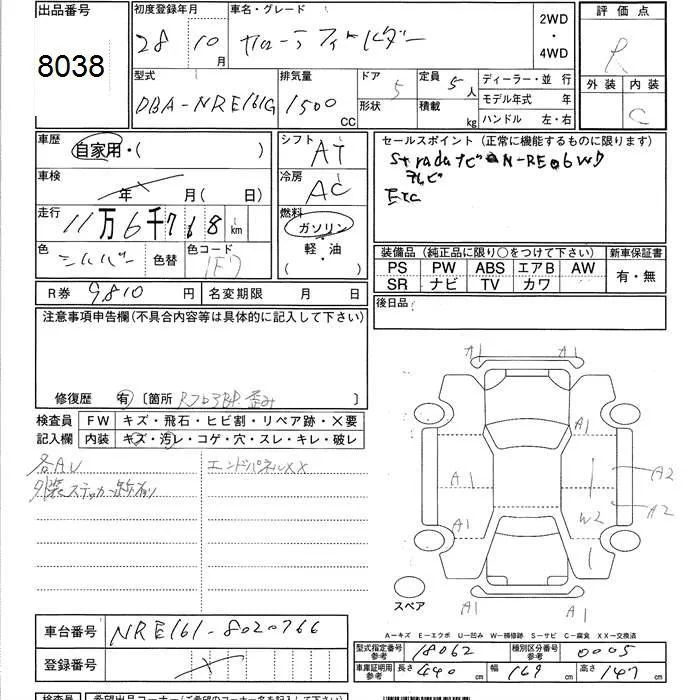 出品番号
8038
初度登録年月
28 10月
車名・グレード
カローラフィールダー
2WD
・
4WD
評価点
R
外装 内装
C
型式
DBA-NRE161G
排気量
1500 CC
ドア 5
形状
定員 5人
積載 kg
ディーラー・並行
モデル年式 年
ハンドル 左・右
車歴
自家用・( )
車検
年 月(日)
走行
11万6千768km
色
シルバー
色替
色コード
1F7
シフト
AT
冷房
AC
燃料
ガソリン
・
軽・油
( )
セールスポイント(正常に機能するものに限ります)
Stradaナビ N-RE06WD
テレビ
ETC
装備品(純正品に限り○をつけて下さい)
新車保証書
PS PW ABS エアB AW
SR ナビ TV カワ
有・無
後日品
R券 9810円
名変期限 月 日
注意事項申告欄(不具合内容等は具体的に記入して下さい)
修復歴 有 〔箇所 ]
検査員
記入欄
FW キズ・飛石・ヒビ割・リペア跡・×要
内装 キズ・汚レ・コゲ・穴・スレ・キレ・破レ
各AU
外装ステッカー跡有り
エンドパネルXX
A1 A1
A1
A1 A2
A1 W2 A2
スペア
A1 A1
A-キズ E-エクボ U-凹み W-補修跡 S-サビ C-腐食 XX-交換済
車台番号
NRE161-8020766
登録番号
型式指定番号
参考
18062
種別区分番号
参考
0005
車庫証明用
参考
長さ 440 cm
幅 169 cm
高さ 147 cm
検査員
希望出品コーナー(ご希望のコーナー名をご記入下さい)